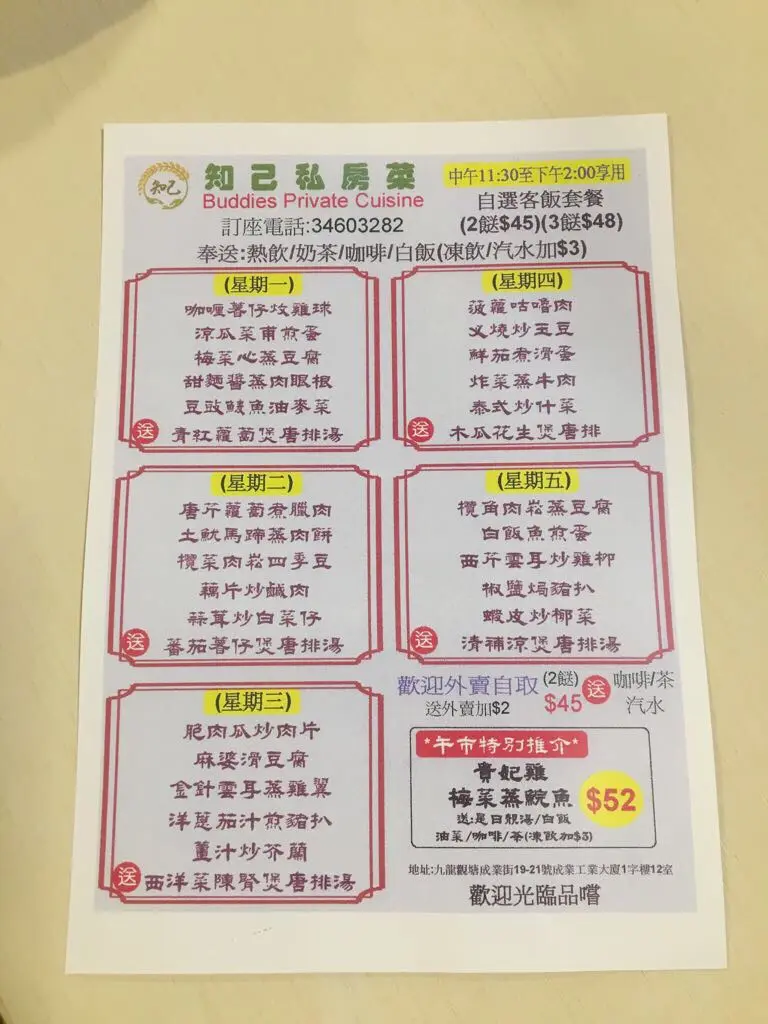 知己
知己私房菜
Buddies Private Cuisine
訂座電話:34603282
中午11:30至下午2:00享用
自選客飯套餐
(2餸$45)(3餸$48)
奉送:熱飲/奶茶/咖啡/白飯(凍飲/汽水加$3)
(星期一)
咖喱薯仔炆雞球
涼瓜菜甫煎蛋
梅菜心蒸豆腐
甜麵醬蒸肉眼根
豆豉鯪魚油麥菜
送 青紅蘿蔔煲唐排湯
(星期二)
唐芹蘿蔔煮臘肉
土魷馬蹄蒸肉餅
欖菜肉崧四季豆
藕片炒鹹肉
蒜茸炒白菜仔
送 蕃茄薯仔煲唐排湯
(星期三)
脆肉瓜炒肉片
麻婆滑豆腐
金針雲耳蒸雞翼
洋蔥茄汁煎豬扒
薑汁炒芥蘭
送 西洋菜陳腎煲唐排湯
(星期四)
菠蘿咕嚕肉
叉燒炒玉豆
鮮茄煮滑蛋
炸菜蒸牛肉
泰式炒什菜
送 木瓜花生煲唐排
(星期五)
欖角肉崧蒸豆腐
白飯魚煎蛋
西芹雲耳炒雞柳
椒鹽焗豬扒
蝦皮炒椰菜
送 清補涼煲唐排湯
歡迎外賣自取 (2餸) $45 送 咖啡/茶
送外賣加$2 汽水
*午市特別推介*
貴妃雞
梅菜蒸鯇魚 $52
送:是日靚湯/白飯
油菜/咖啡/茶(凍飲加$3)
地址:九龍觀塘成業街19-21號成業工業大廈1字樓12室
歡迎光臨品嚐